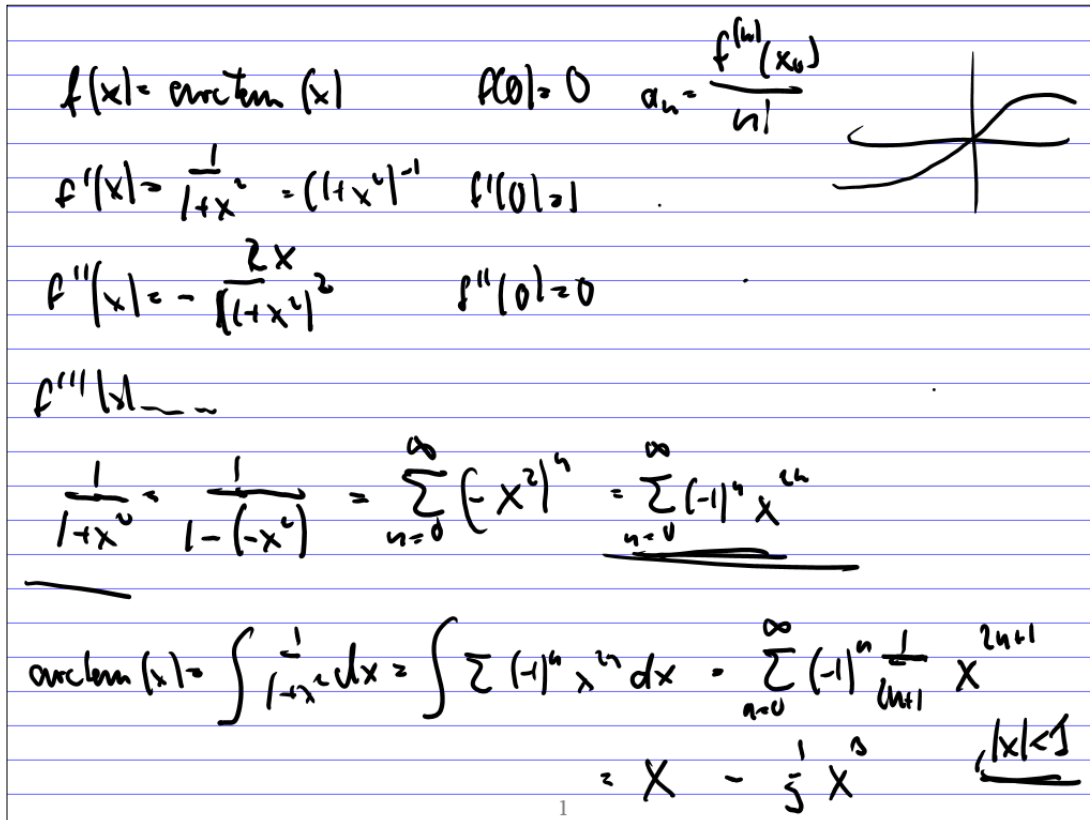 f(x) = arctan (x) f(0) = 0 a_n = f^(n)(x_0) / n!
f'(x) = 1/(1+x²) = (1+x²)^-1 f'(0) = 1
f''(x) = - 2x/(1+x²)² f''(0) = 0
f'''(x) ___
1/(1+x²) = 1/(1-(-x²)) = ∑_{n=0}^∞ (-x²)^n = ∑_{n=0}^∞ (-1)^n x^{2n}
arctan (x) = ∫ 1/(1+x²) dx = ∫ ∑ (-1)^n x^{2n} dx = ∑_{n=0}^∞ (-1)^n 1/(2n+1) x^{2n+1}
= x - 1/3 x³ , |x| < 1
1